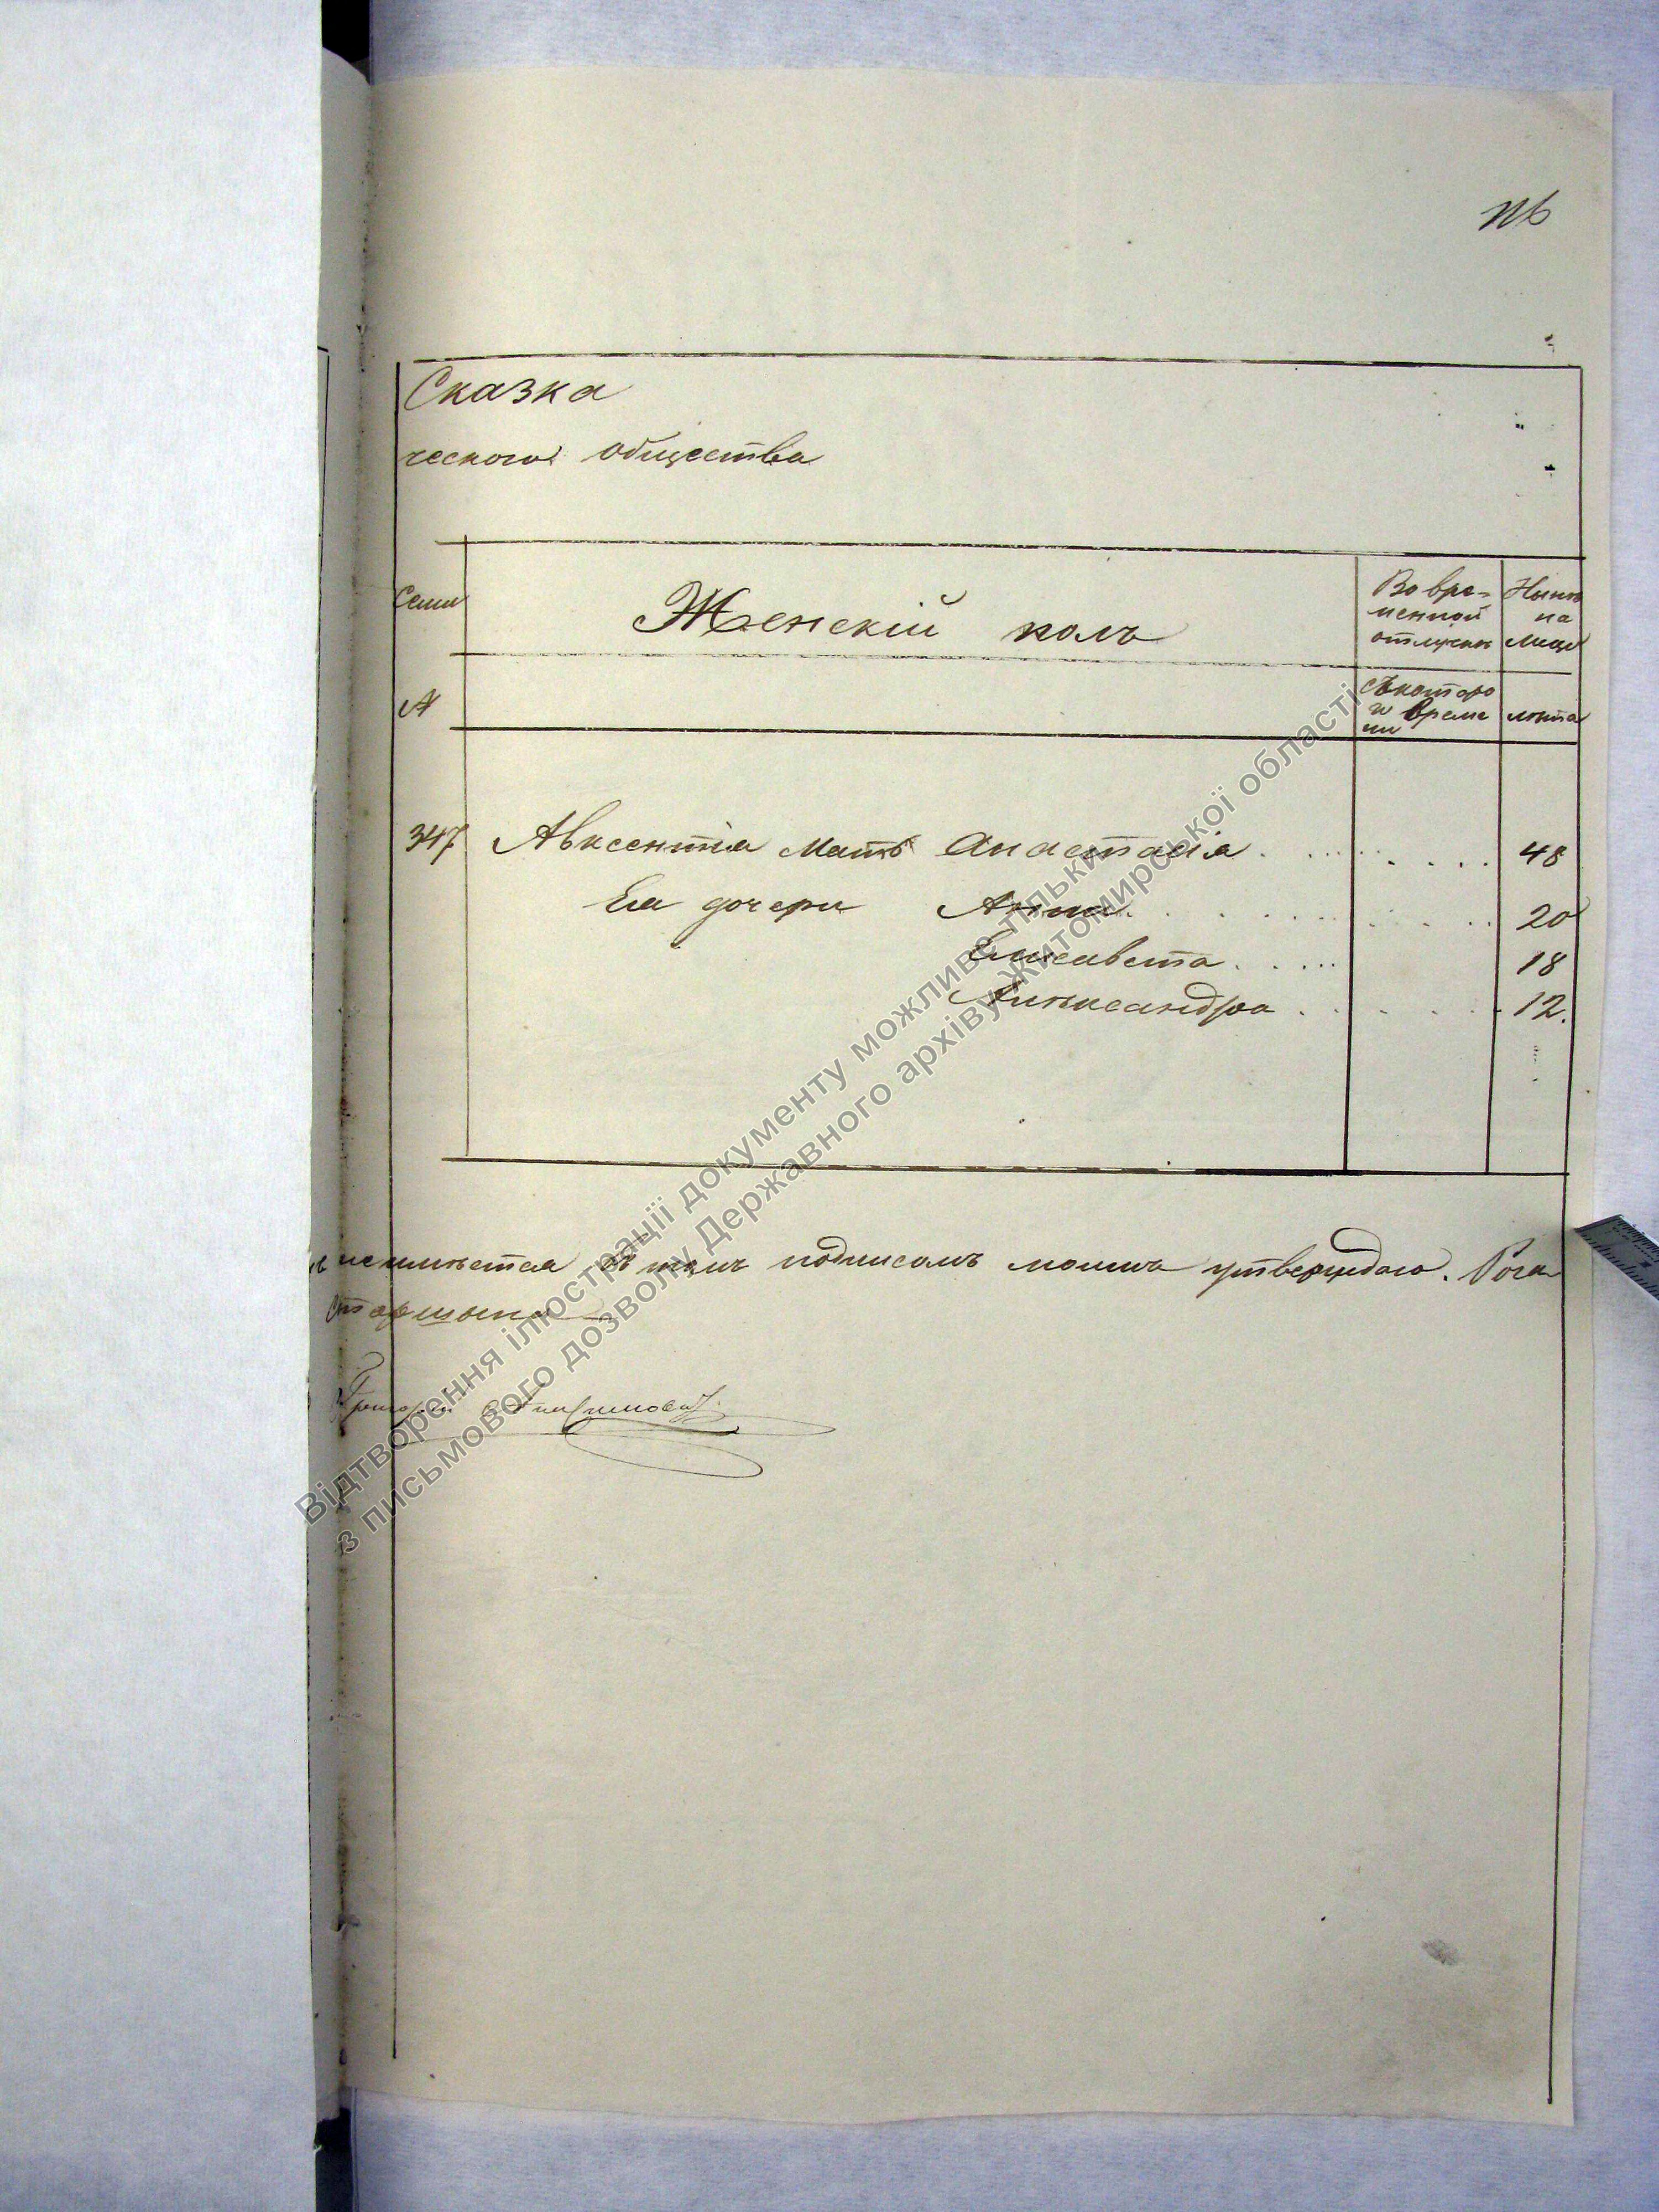 Сказка
ческого общества
Семьи
Женскій полъ
Во вре-
менной
отлучки
Нынѣ
на
лицо
№
съ которо
и време
ни
лѣта
347 Авксентія мать Анастасія . . . . . . . . 48
Ея дочери Анна . . . . . . . . 20
Елисавета . . . . . 18
Александра . . . . . . 12.
неимѣется въ томъ подписомъ моимъ утверждаю. Рога
старшина
Григорій
Відтворення ілюстрації документу можливе тільки
з письмового дозволу Державного архіву Житомирської області